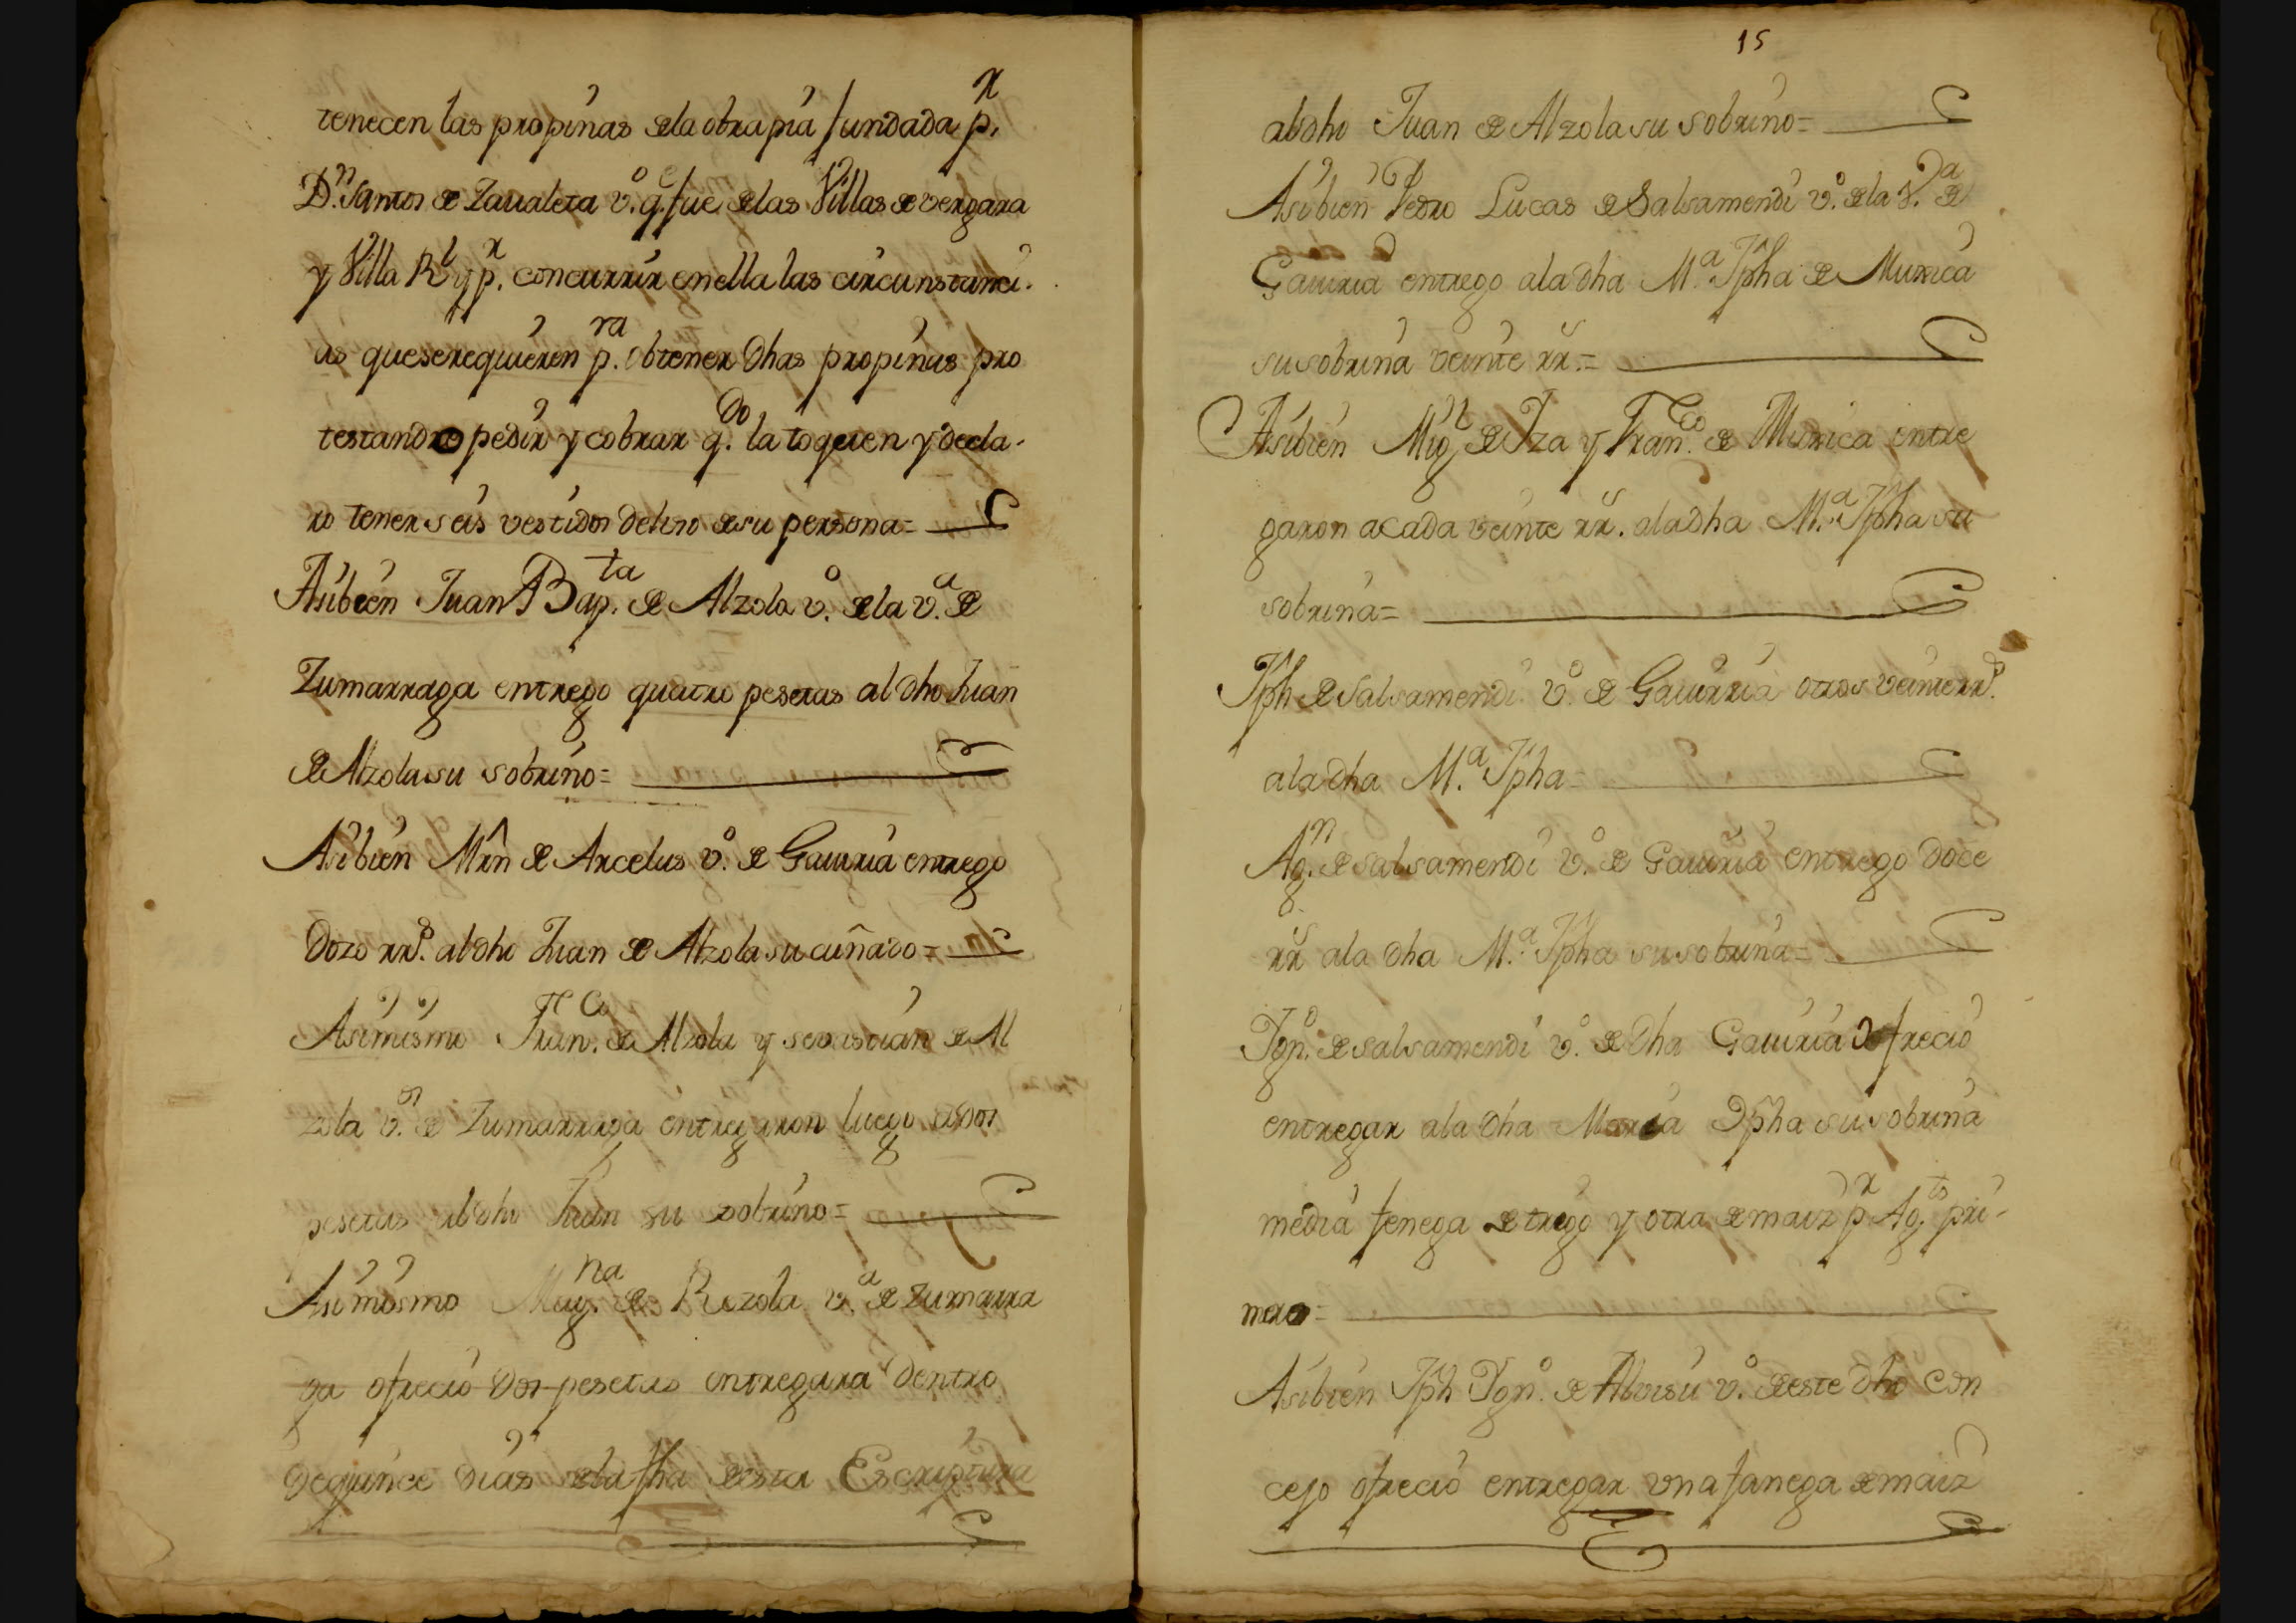 tenecen las propinas de la obra pia fundada p.r
D.n Santos de Zavaleta v.o q.e fue de las Villas de vergara
y Villa R.l y p.r concurrir en ella las circunstanci-
as que se requieren p.ra obtener dhas propinas pro
testando pedir y cobrar q.do la toquen y decla-
ro tener seis vestidos de lino de su persona=
Asibien Juan Bap.ta de Alzola v.o de la v.a de
Zumarraga entrego quatro pesetas al dho Juan
de Alzola su sobrino=
Asibien Mrn de Arcelus v.o de Gaviria entrego
dozo rr.s al dho Juan de Alzola su cuñado=
Asimismo Fran.co de Alzola y sevastian de Al
zola v.os de Zumarraga entregaron luego a dos
pesetas al dho Juan su sobrino=
Asimismo Mag.na de Rezola v.a de Zumarra
ga ofrecio dos pesetas entregara dentro
de quince dias de la fha de esta Escriptura
15
al dho Juan de Alzola su sobrino=
Asibien Pedro Lucas de Salsamendi v.o de la V.a de
Gaviria entrego a la dha M.a Jpha de Muxica
su sobrina veinte rr.s=
Asibien Mig.l de Iza y Fran.co de Muxica entre
garon a cada veinte rr.s a la dha M.a Jpha su
sobrina=
Jph de Salsamendi v.o de Gaviria otros veinte rr.s
a la dha M.a Jpha=
Ag.n de salsamendi v.o de Gaviria entrego doce
rr.s a la dha M.a Jpha su sobrina=
Ign.o de salsamendi v.o de dha Gaviria ofrecio
entregar a la dha Maria Jpha su sobrina
media fenega de trigo y otra de maiz p.r Ag.to pri-
mero=
Asibien Jph Ign.o de Alvisu v.o de este dho con
cejo ofrecio entregar una fanega de maiz